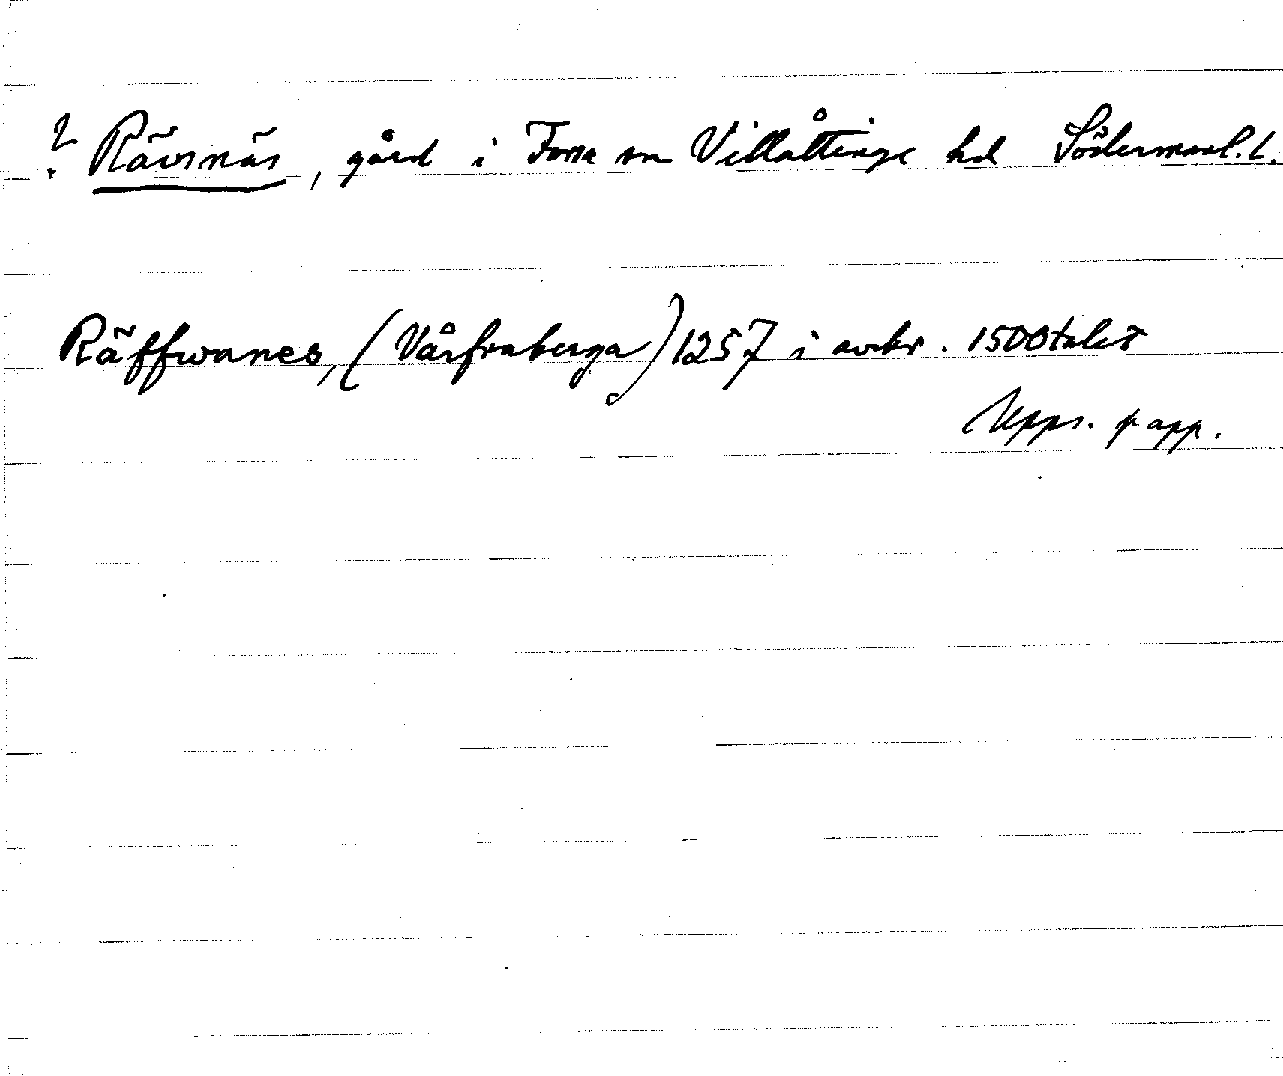 ? Rävsnäs, gård i Forssa sn Villåttinge hd Södermanl. l.
Räffwanes, (Vårfruberga) 1257 i avskr. 1500talet
Upps. papp.